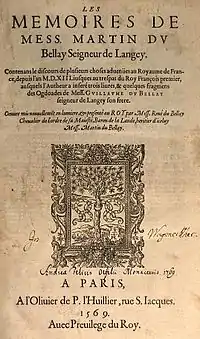 LES
MEMOIRES DE
MESS. MARTIN DV
Bellay Seigneur de Langey.
Contenans le discours de plusieurs choses aduenües au Royaume de France, depuis l'an M.D.XIII.
iusques au trespas du Roy François premier,
ausquels l'Autheur a inseré trois liures, & quelques fragmens
des Ogdoades de Mess. GVILLAVME DV BELLAY
seigneur de Langey son frere.
Oeuure mis nouuellement en lumiere, & presenté au ROY par Mess. René du Bellay
Cheualier de l'ordre de sa Maiesté, Baron de la Lande, heritier d'iceluy
Mess. Martin du Bellay.
1769
A PARIS,
A l'Oliuier de P. l'Huillier, rue S. Iacques.
1569.
Auec Preuilege du Roy.